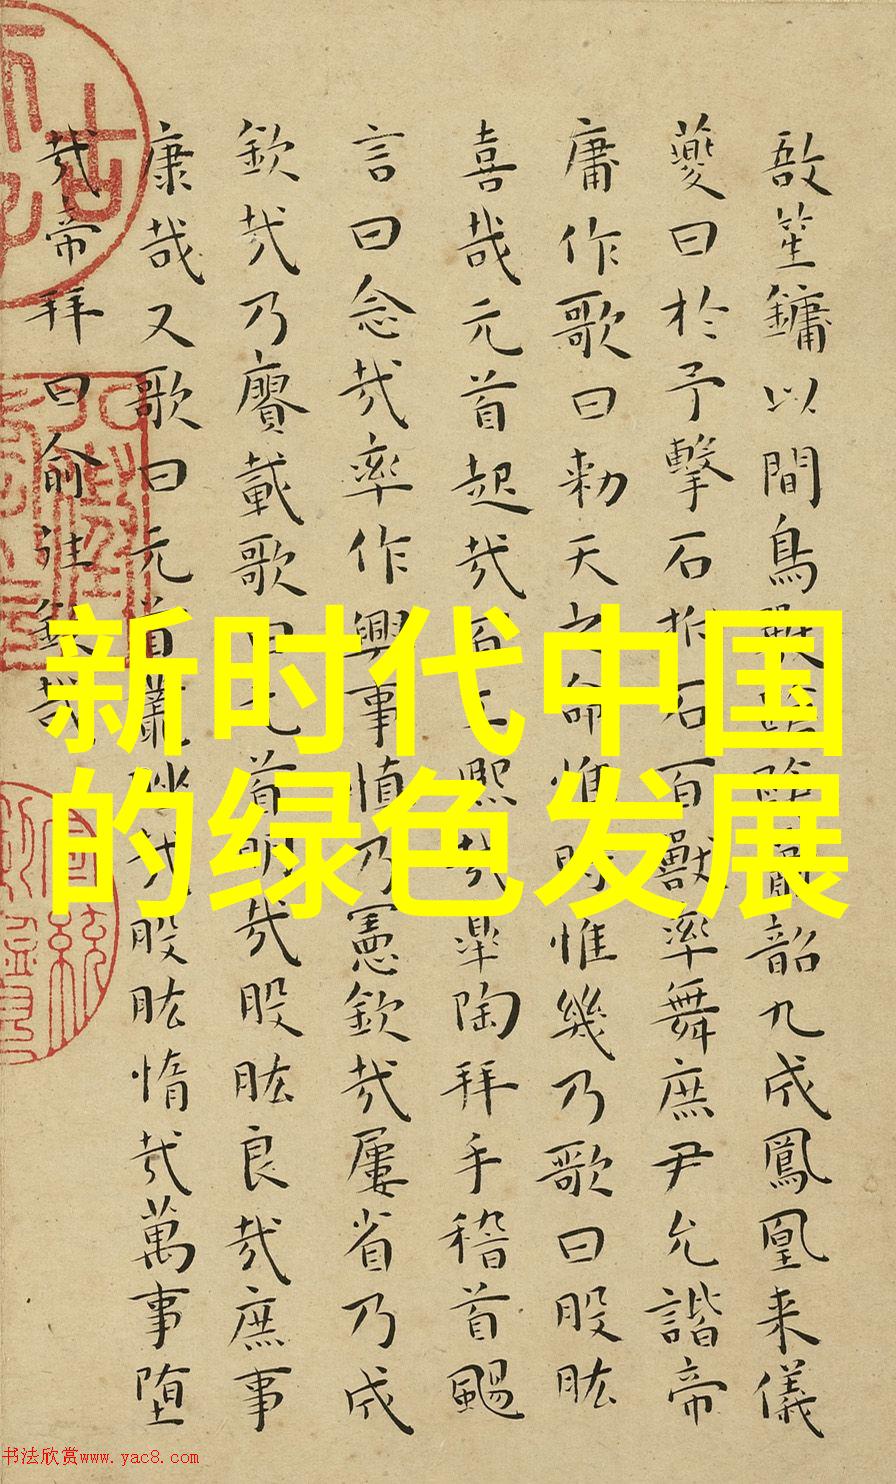 新时代中国
的绿色发展
敔笙鏞以間鳥獸蹌蹌簫韶九成鳳凰来儀
夔曰於予擊石拊石百獸率舞庶尹允諧帝
庸作歌曰勑天之命惟時惟幾乃歌曰股肱
喜哉元首起哉百工熙哉皐陶拜手稽首颺
言曰念哉率作興事慎乃憲欽哉屢省乃成
欽哉乃賡載歌曰元首明哉股肱良哉庶事
康哉又歌曰元首叢脞哉股肱惰哉萬事堕
哉帝拜曰俞往欽哉
书法欣赏www.yac8.com